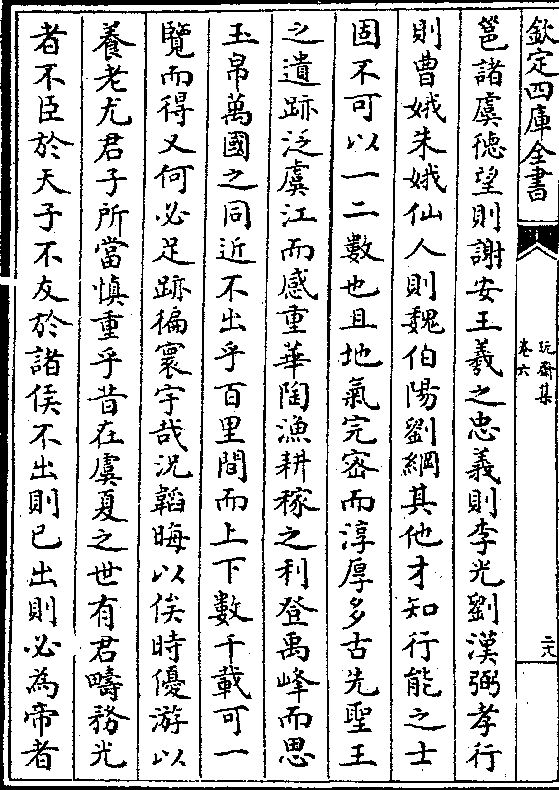 欽定四庫全書
玩齋集
卷六
二八
邕諸虞徳望則謝安王羲之忠義則李光劉漢弼孝行
則曹娥朱娥仙人則魏伯陽劉綱其他才知行能之士
固不可以一二數也且地氣完宻而淳厚多古先聖王
之遺跡泛虞江而感重華陶漁耕稼之利登禹峰而思
玉帛萬國之同近不出乎百里間而上下數千載可一
覽而得又何必足跡徧寰宇哉況韜晦以俟時優游以
養老尤君子所當慎重乎昔在虞夏之世有君疇務光
者不臣於天子不友於諸侯不出則已出則必為帝者